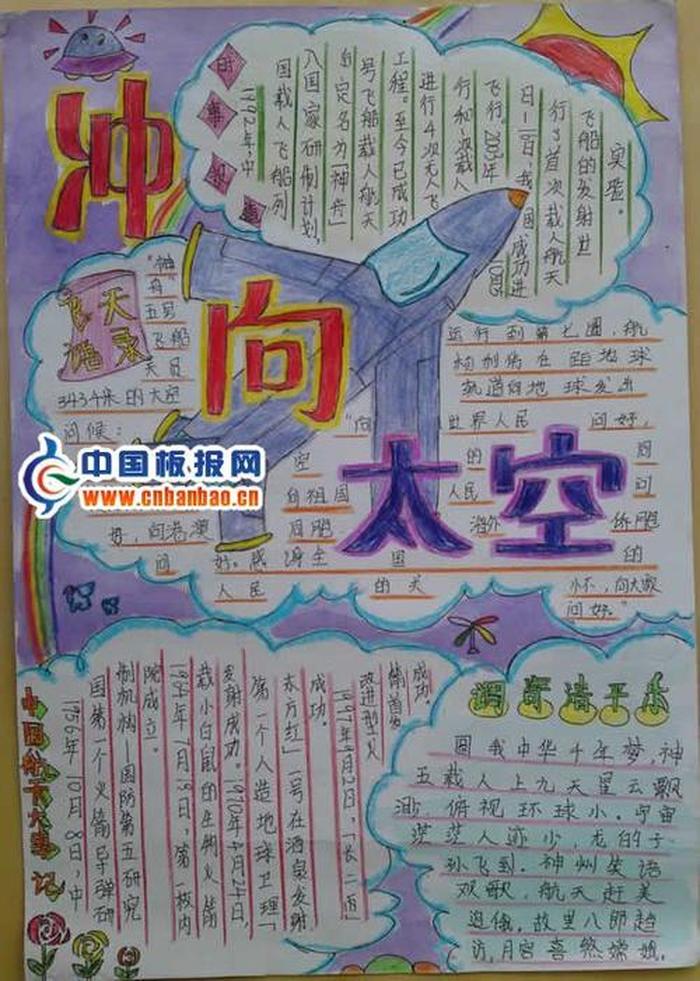 冲
向
太空
时事
1992年,中
国载人飞船列
入国家研制计划,
自定名为「神舟」
号飞船载人航天
工程。至今已成功
进行4次无人飞
行和一次载人
飞行。2003年
日—16日,我国成功进
行了首次载人航天
飞船的发射
实验。
飞天
语录
"神
舟"
五号
飞船
天员
3434米的太空
问候:
运行到第七圈,航
在距地球
轨道向地球发出
"向世界人民问好,
空的同
向祖国人民问
好,向港澳同胞海外侨胞
问好。感谢全国的
人民的关怀,向大家
问好。"
中国板报网
www.cnbanbao.cn
中国航天大事记
1956年10月8日,中
国第一个火箭导弹研
制机构—国防第五研究
院成立。
1964年7月19日,第一枚内
载小白鼠的生物火箭
发射成功。1970年4月24日,
第一个人造地球卫星「
东方红」一号在酒泉发射
成功。
1997年9月2日,「长二丙」
改进型火
箭首发
成功。
调寄清平乐
圆我中华千年梦,神
五载人上九天星云飘
渺,俯视环球小。宇宙
茫茫人迹少,龙的子
孙飞到。神州笑语
欢歌,航天赶美
追俄。故里八郎趋
访,月宫喜煞嫦娥。